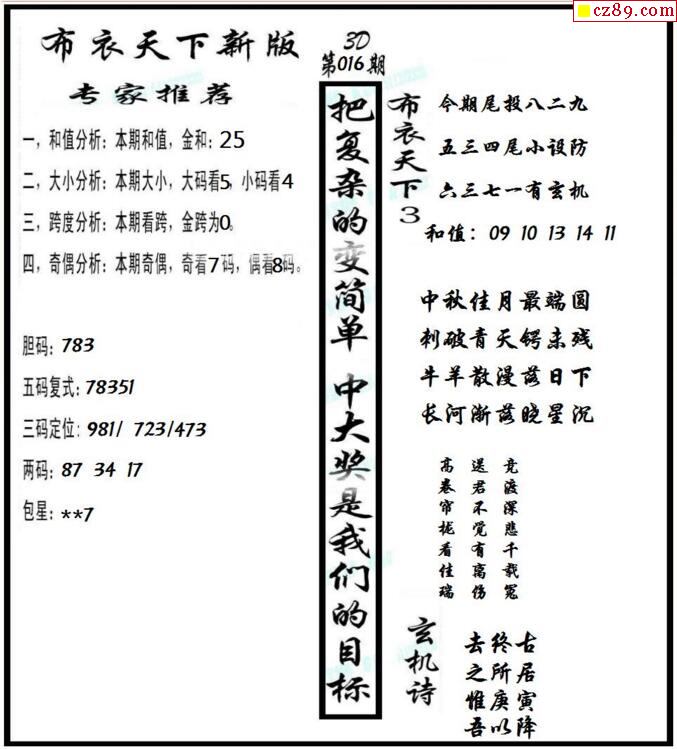 cz89.com
布衣天下新版
专家推荐
一，和值分析：本期和值，金和：25
二，大小分析：本期大小，大码看5，小码看4
三，跨度分析：本期看跨，金跨为0。
四，奇偶分析：本期奇偶，奇看7码，偶看8码。
胆码：783
五码复式：78351
三码定位：981/ 723/473
两码：87 34 17
包星：**7
3D
第016期
把复杂的变简单 中大奖是我们的目标
布衣天下3
今期尾投八二九
五三四尾小设防
六三七一有玄机
和值：09 10 13 14 11
中秋佳月最端圆
刺破青天锷未残
牛羊散漫落日下
长河渐落晓星沉
竞渡深悲千载冤
送君不觉有离伤
高卷帘栊看佳瑞
玄机诗
古居寅降
终所庚以
去之惟吾